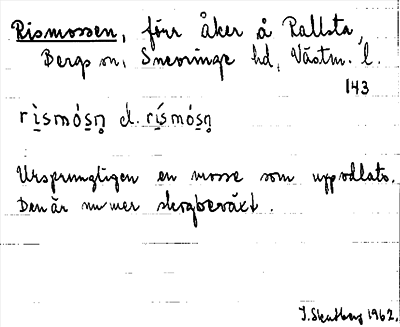 Rismossen, förr åker å Rallsta,
Bergs sn, Snevringe hd, Västm. l.
143
rìsmósn̥ el. rísmósn̥
Ursprungligen en mosse som uppodlats.
Den är numer skogbeväxt.
1962.